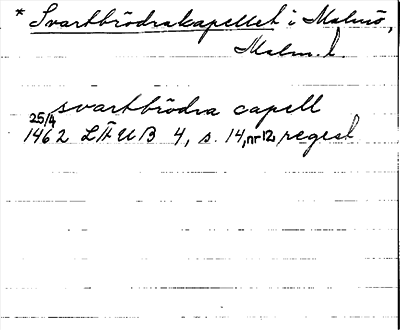 * Svartbrödrakapellet i Malmö,
Malm. l.
svartbrödra capell
25/4
1462 LÄUB 4, s. 14, nr 12, regest